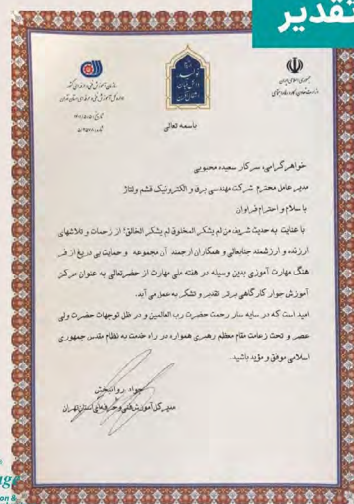 تقدیر
جمهوری اسلامی ایران
وزارت تعاون، کار و رفاه اجتماعی
سازمان آموزش فنی و حرفه ای کشور
اداره کل آموزش فنی و حرفه ای استان تهران
باسمه تعالی
خواهر گرامی، سرکار سعیده محبوبی
مدیر عامل محترم شرکت مهندسی برق و الکترونیک قشم ولتاژ
با سلام و احترام فراوان
با عنایت به حدیث شریف من لم یشکر المخلوق لم یشکر الخالق؛ از زحمات و تلاشهای
ارزنده و ارزشمند جنابعالی و همکاران ارجمند آن مجموعه و حمایت بی دریغ از فر
هنگ مهارت آموزی بدین وسیله در هفته ملی مهارت از حضرتعالی به عنوان مرکز
آموزش جوار کارگاهی برتر تقدیر و تشکر به عمل می آید.
امید است که در سایه سار رحمت حضرت رب العالمین و در ظل توجهات حضرت ولی
عصر و تحت زعامت مقام معظم رهبری همواره در راه خدمت به نظام مقدس جمهوری
اسلامی موفق و مؤید باشید.
جواد روانبخش
مدیر کل آموزش فنی و حرفه ای استان تهران